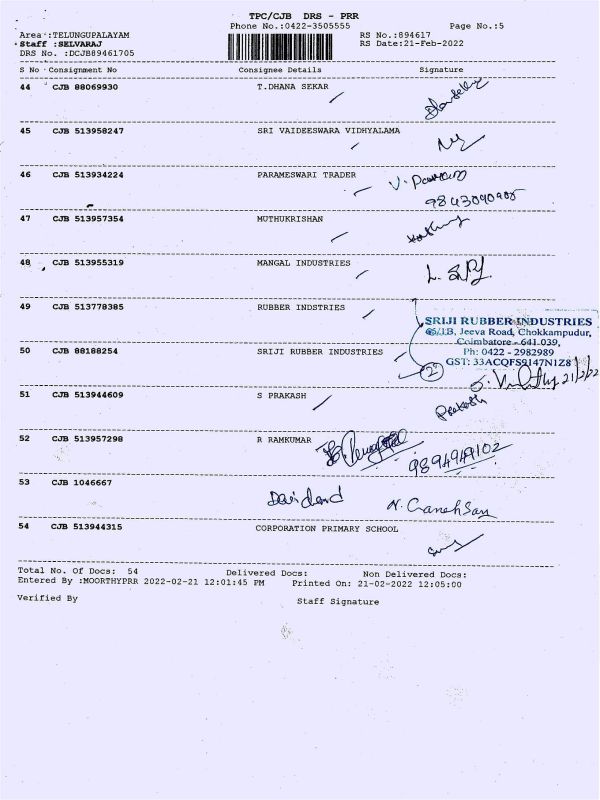 TPC/CJB DRS - PRR
Phone No.:0422-3505555 Page No.:5
Area :TELUNGUPALAYAM RS No.:894617
Staff :SELVARAJ RS Date:21-Feb-2022
DRS No. :DCJB89461705
S No Consignment No Consignee Details Signature
44 CJB 88069930 T.DHANA SEKAR
45 CJB 513958247 SRI VAIDEESWARA VIDHYALAMA
46 CJB 513934224 PARAMESWARI TRADER
47 CJB 513957354 MUTHUKRISHAN
48 CJB 513955319 MANGAL INDUSTRIES
49 CJB 513778385 RUBBER INDSTRIES
SRIJI RUBBER INDUSTRIES
65/1B, Jeeva Road, Chokkampudur,
Coimbatore - 641 039.
Ph: 0422 - 2982989
GST: 33ACQFS9147N1Z8
50 CJB 88188254 SRIJI RUBBER INDUSTRIES
21/2/22
51 CJB 513944609 S PRAKASH
Prakash
52 CJB 513957298 R RAMKUMAR
9894949102
53 CJB 1046667
54 CJB 513944315 CORPORATION PRIMARY SCHOOL
Total No. Of Docs: 54 Delivered Docs: Non Delivered Docs:
Entered By :MOORTHYPRR 2022-02-21 12:01:45 PM Printed On: 21-02-2022 12:05:00
Verified By Staff Signature